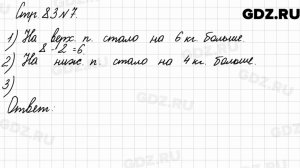 GDZ.RU
Стр. 83 №7.
1) На верх. п. стало на 6 кг. больше.
8 - 2 = 6
2) На ниж. п. стало на 4 кг. больше.
3)
Ответ:
GDZ.RU